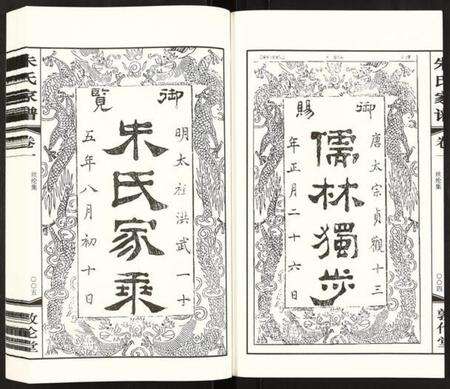 御賜
唐太宗貞觀十三
儒林獨步
年正月二十六日
朱氏家譜
卷一
丝纶集
〇〇四
敦伦堂
御覽
明太祖洪武一十
朱氏家乘
五年八月初十日
朱氏家譜
卷一
丝纶集
〇〇五
敦伦堂